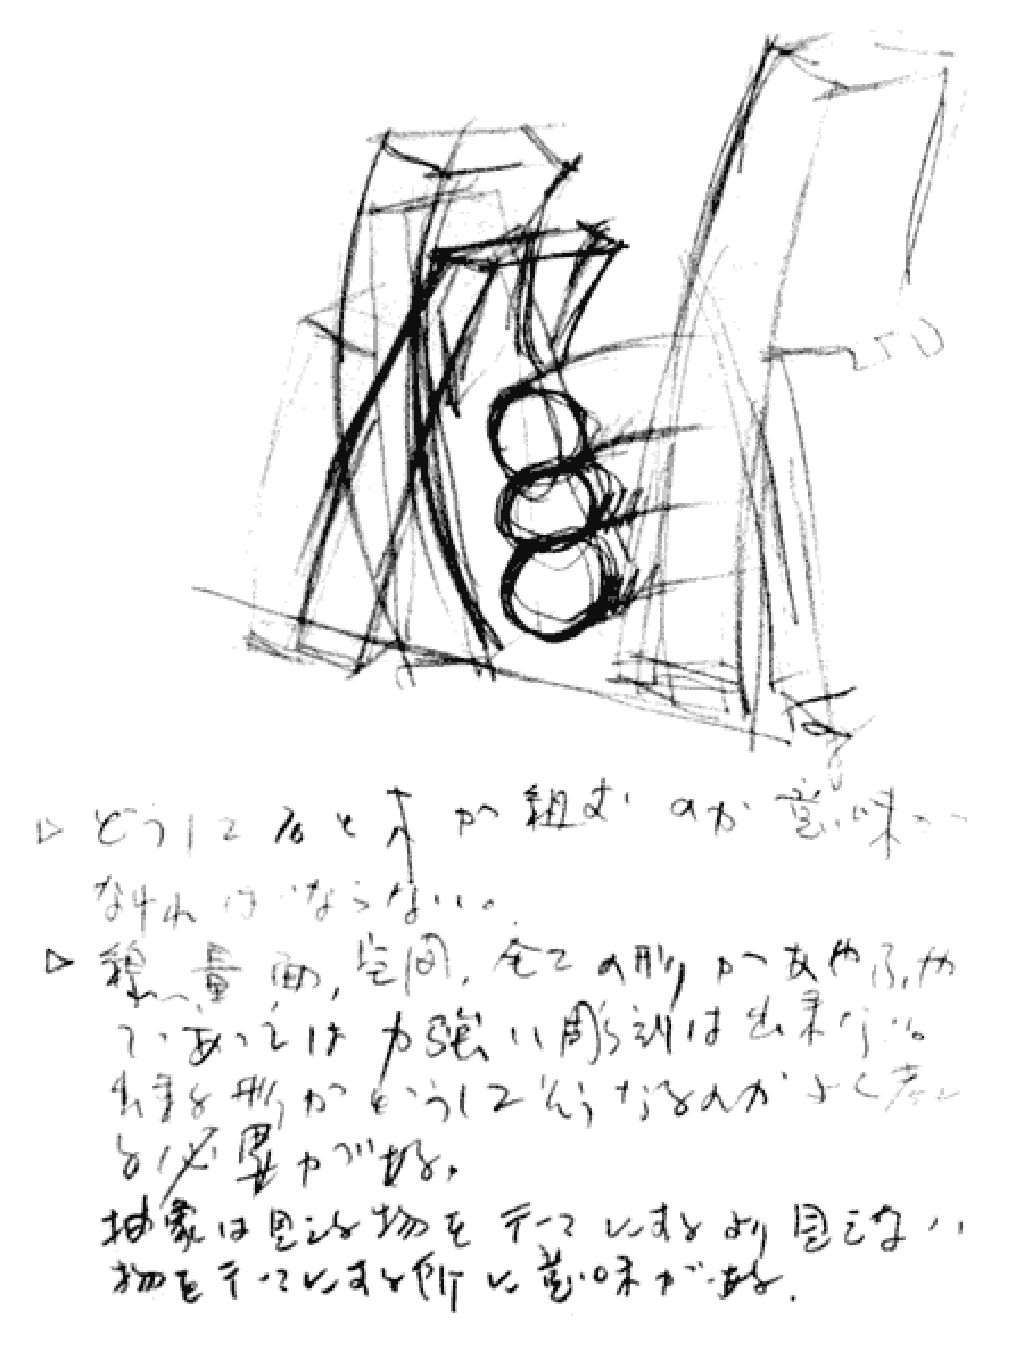 250
▷ どうして石と木が組むのか意味…
なければならない。
▷ 線、量、面、空間、全ての形があやふや
であっては力強い彫刻は出来ない。
出来る形がどうしてそうなるのかよく考え
る必要がある。
抽象は見える物を立てにするより見えない
物を にする所に意味がある。